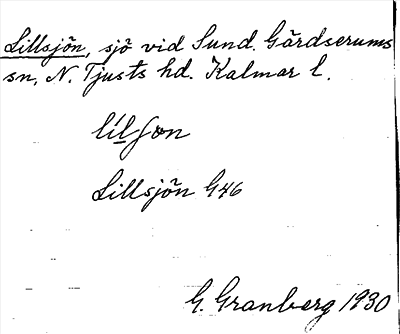 Lillsjön, sjö vid Sund. Gärdserums
sn, N. Tjusts hd. Kalmar l.
Lillsjön G46
G. Granberg 1930